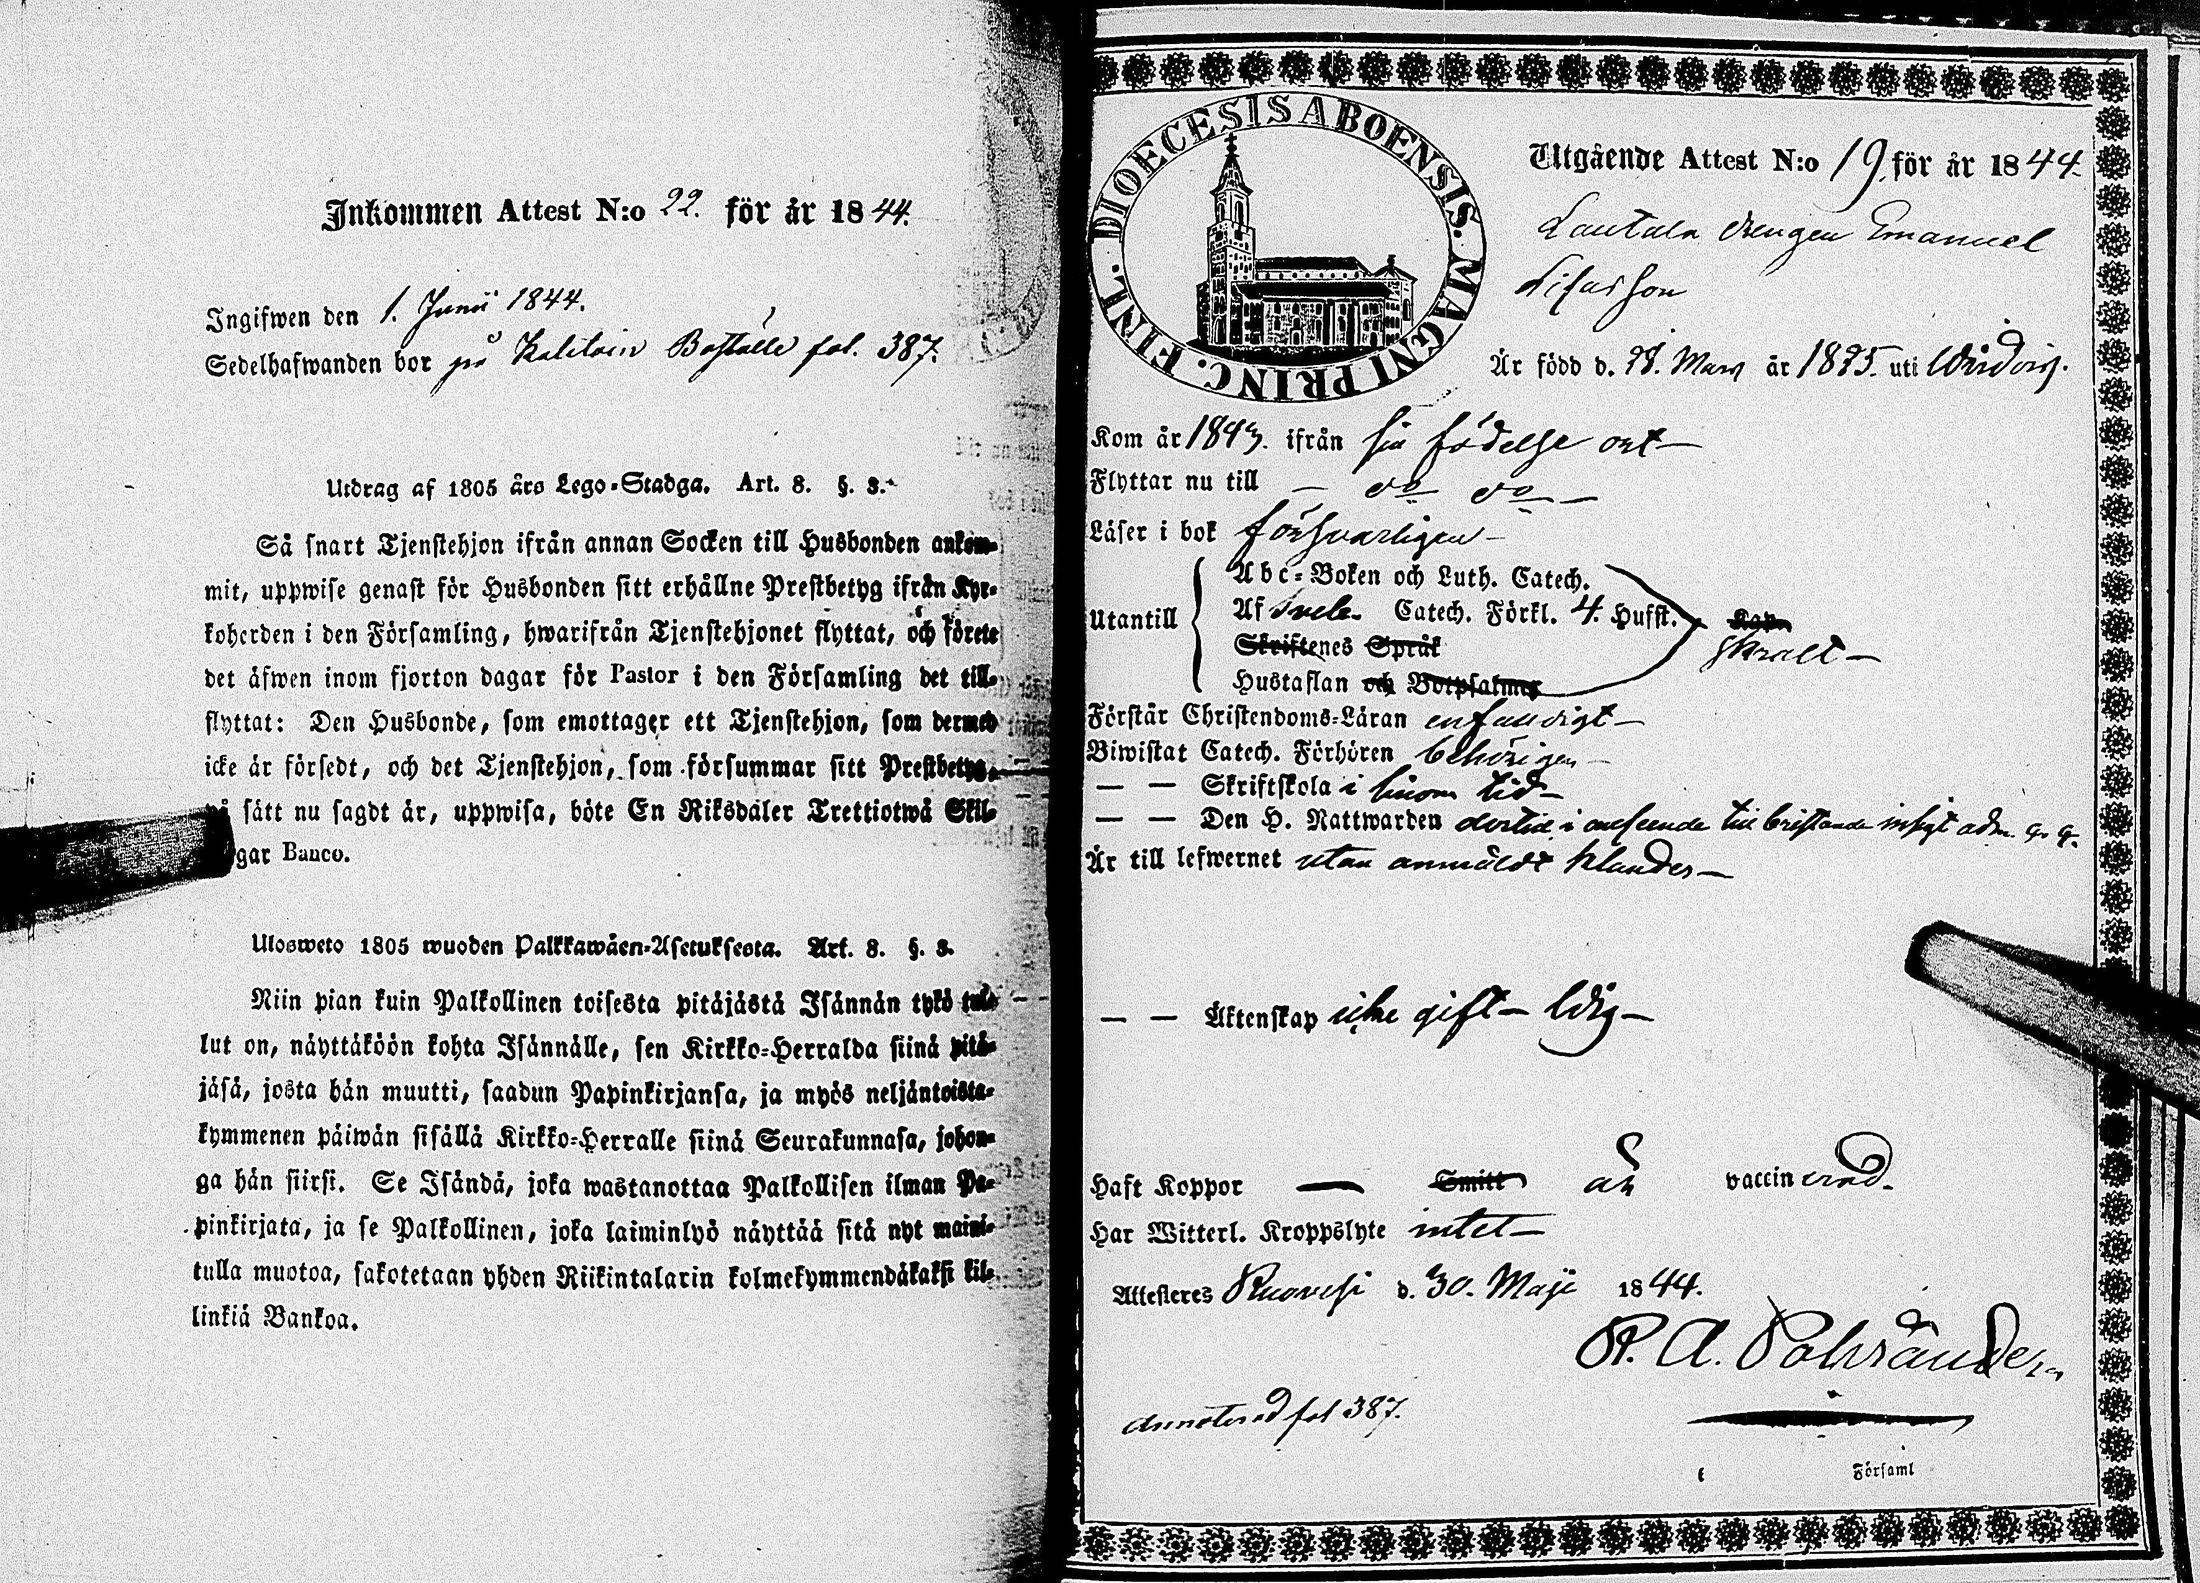 Inkommen Attest N:o 22. för år 1844.
Ingifwen den 1. Junii 1844.
Sedelhafwanden bor på Boställe fol. 387.
Utdrag af 1805 års Lego-Stadga. Art. 8. §. 3.
Så snart Tjenstehjon ifrån annan Socken till Husbonden ankom-
mit, uppwise genast för Husbonden sitt erhållne Prestbetyg ifrån Kyr-
koherden i den Församling, hwarifrån Tjenstehjonet flyttat, och förete
det äfwen inom fjorton dagar för Pastor i den Församling det till-
flyttat: Den Husbonde, som emottager ett Tjenstehjon, som dermed
icke är försedt, och det Tjenstehjon, som försummar sitt Prestbetyg,
på sätt nu sagdt är, uppwisa, böte En Riksdaler Trettiotwå Skil-
gar Banco.
Ulosweto 1805 wuoden Palkkawäen-Asetuksesta. Art. 8. §. 3.
Niin pian kuin Palkollinen toisesta pitäjästä Isännän tykö tul-
lut on, näyttäköön kohta Isännälle, sen Kirkko-Herralda siinä pitä-
jäsä, josta hän muutti, saadun Papinkirjansa, ja myös neljäntoista-
kymmenen päiwän sisällä Kirkko-Herralle siinä Seurakunnasa, johon-
ga hän siirsi. Se Isändä, joka wastanottaa Palkollisen ilman Pa-
pinkirjata, ja se Palkollinen, joka laiminlyö näyttää sitä nyt maini-
tulla muotoa, sakotetaan yhden Riikintalarin kolmekymmendäkaksi kil-
linkiä Bankoa.
DIOECESIS ABOENSIS. MAGNI PRINC. FINL.
Utgående Attest N:o 19 för år 1844.
Lautala drengen Emanuel
Är född d. 28. Mars år 1825. uti
Kom år 1843. ifrån sin födelse ort
Flyttar nu till — do do —
Läser i bok försvarligen
Utantill
Abc-Boken och Luth. Catech.
Af Catech. Förkl. 4. Hufst.
Skriftenes Språk
Hustaflan och Botpsalmer
Förstår Christendoms-Läran enfaldigt
Biwistat Catech. Förhören behörigen
— — Skriftskola i sinom tid
— — Den H. Nattwarden i anseende till bristande insigt
Är till lefwernet utan anmäldt klander
— — Äktenskap icke gift - ledig
Haft Koppor — Smitt är vaccinerad.
Har Witterl. Kroppslyte intet
Attesteres Ruovesi d. 30. Maji 1844.
annoterad fol 387.
Församl